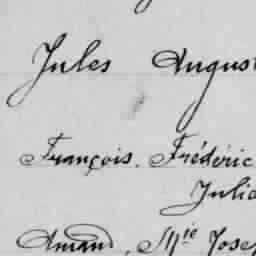 Jules August
François. Frédéric
Julie
Amand, Mie Jose